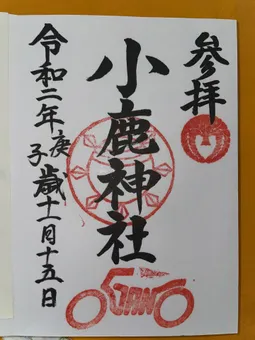 参拝
小鹿神社
令和二年庚子歳十一月十五日